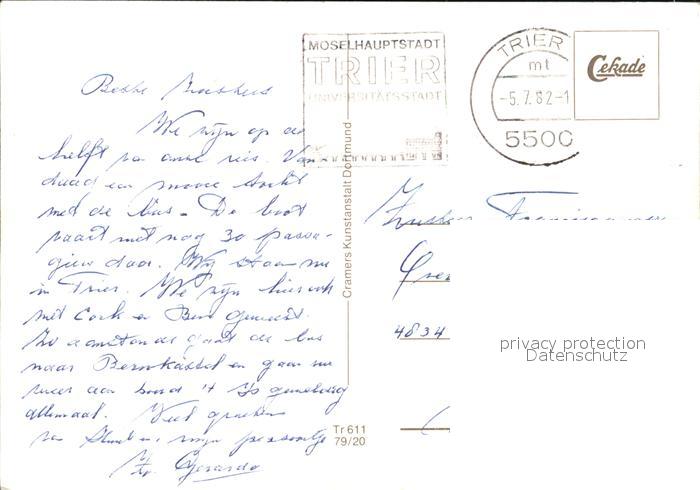 MOSELHAUPTSTADT
TRIER
UNIVERSITÄTSSTADT
TRIER
mt
-5.7.82-1
5500
Cekade
Beste
We zijn op de
helft van onze reis. Van
daag een mooie tocht
met de bus - De boot
vaart met nog 30 passa-
giers door. Wij staan nu
in Trier. We zijn hier ook
met Cork en Ben geweest.
Zo aanstonds gaat de bus
naar Bernkastel en gaan we
weer aan boord 't Is
allemaal. Veel groeten
van
Zr. Gerarda
Cramers Kunstanstalt Dortmund
Tr 611
79/20
4834
privacy protection
Datenschutz